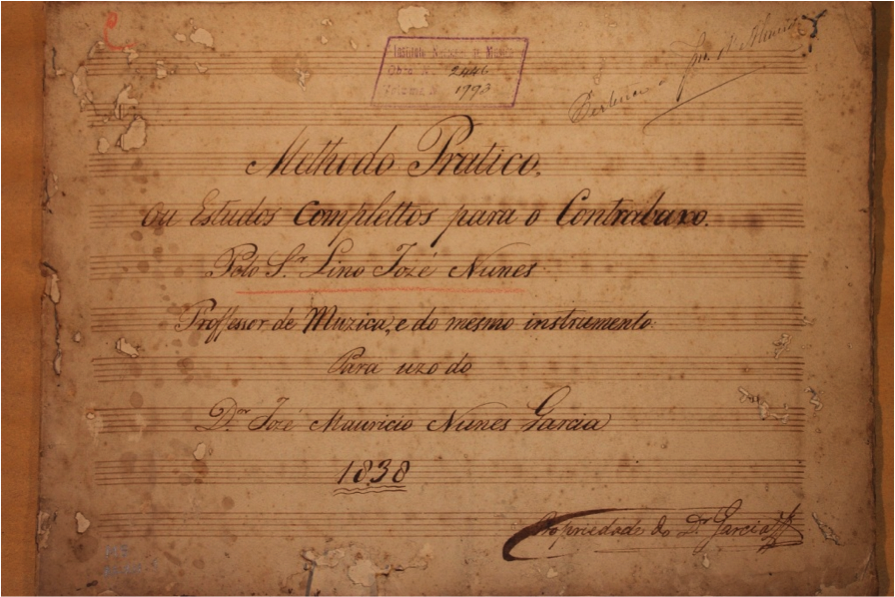 Instituto Nacional de Musica
Obra N. 2446
Volume N. 1793
Pertence a
Methodo Pratico.
ou Estudos Complettos para o Contrabaxo.
Pelo S.r Lino Jozé Nunes
Proffessor de Muzica, e do mesmo instrumento:
Para uzo do
D.or Jozé Mauricio Nunes Garcia
1838
Propriedade do D.r Garcia